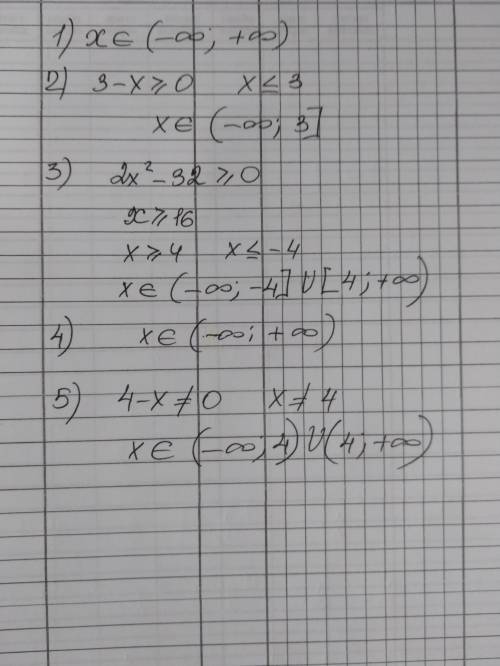 1) x ∈ (-∞; +∞)
2) 3-x ⩾ 0 x ≤ 3
x ∈ (-∞; 3]
3) 2x²-32 ⩾ 0
x ⩾ 16
x ⩾ 4 x ≤ -4
x ∈ (-∞; -4] U [4; +∞)
4) x ∈ (-∞; +∞)
5) 4-x ≠ 0 x ≠ 4
x ∈ (-∞; 4) U (4; +∞)